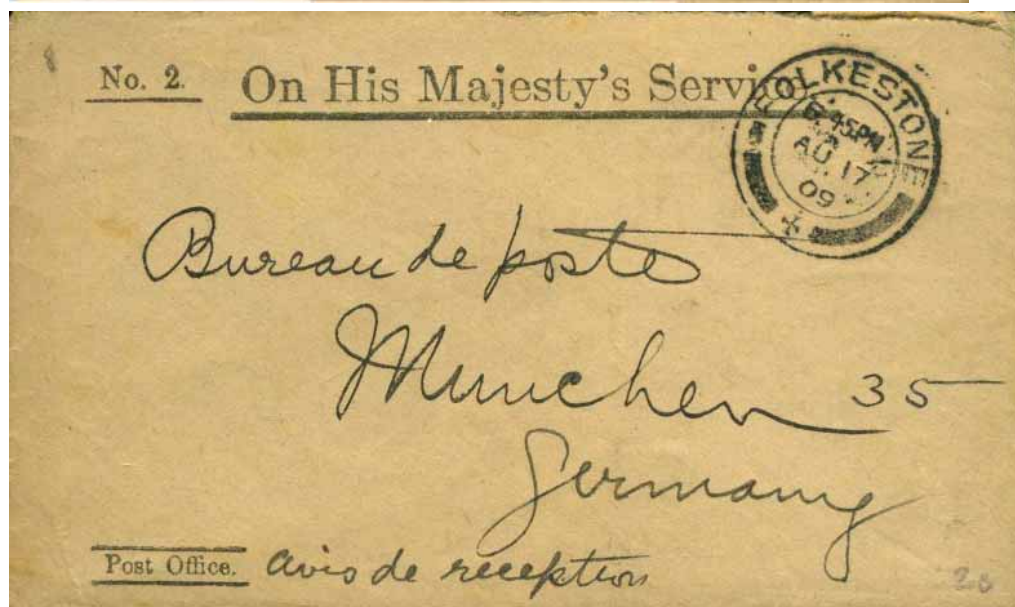 No. 2. On His Majesty's Service.
FOLKESTONE
PM
AU 17
09
Bureau de poste
Munchen 35
Germany
Post Office. avis de reception